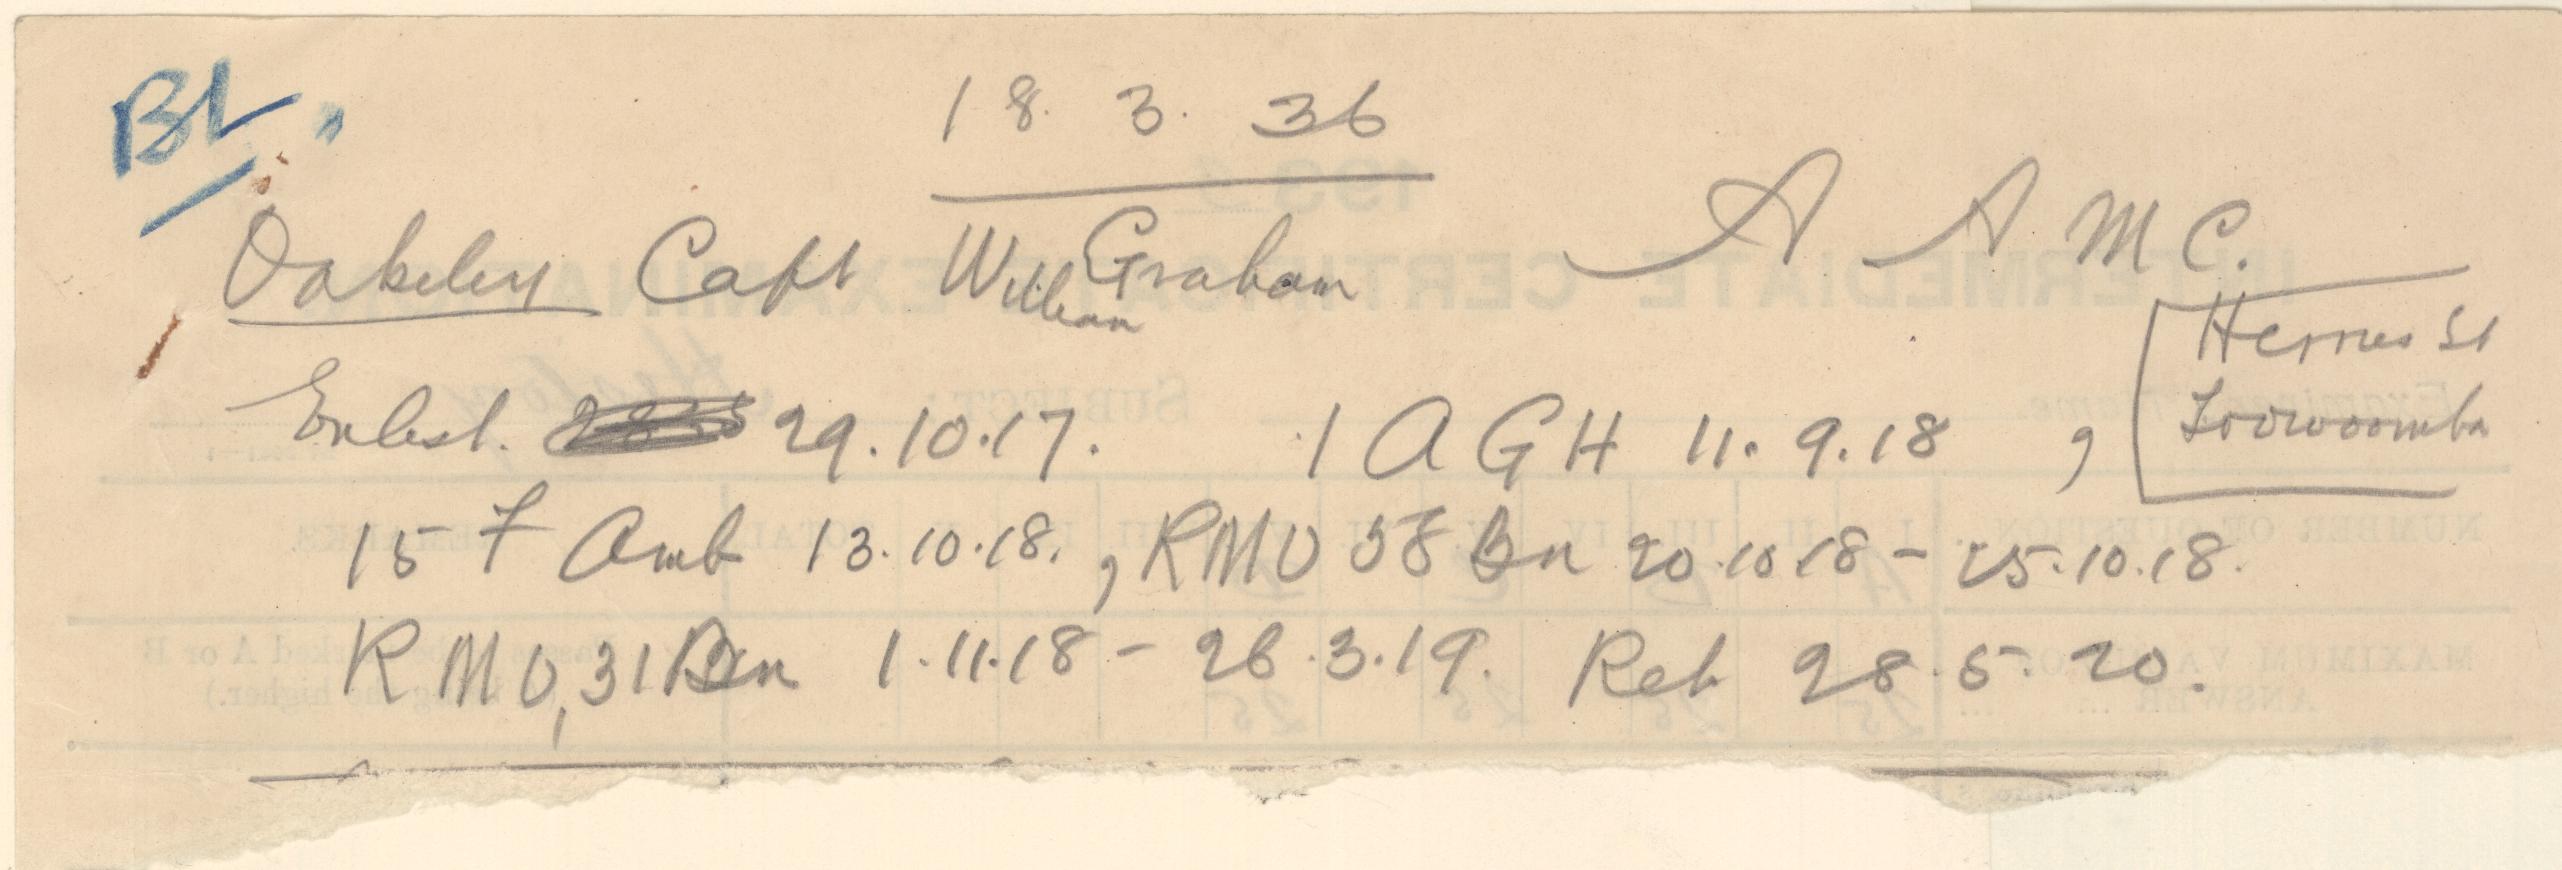 BL. "
18. 3. 36
Oakeley Capt William Graham A A M C.
Herries St
Toowoomba
Enlist. 29.10.17. 1 A G H 11. 9. 18 ,
15 F Amb 13.10.18. , RMO 58 Bn 20.10.18 - 25.10.18.
RMO, 31 Bn 1.11.18 - 26.3.19. Ret 28.5.20.